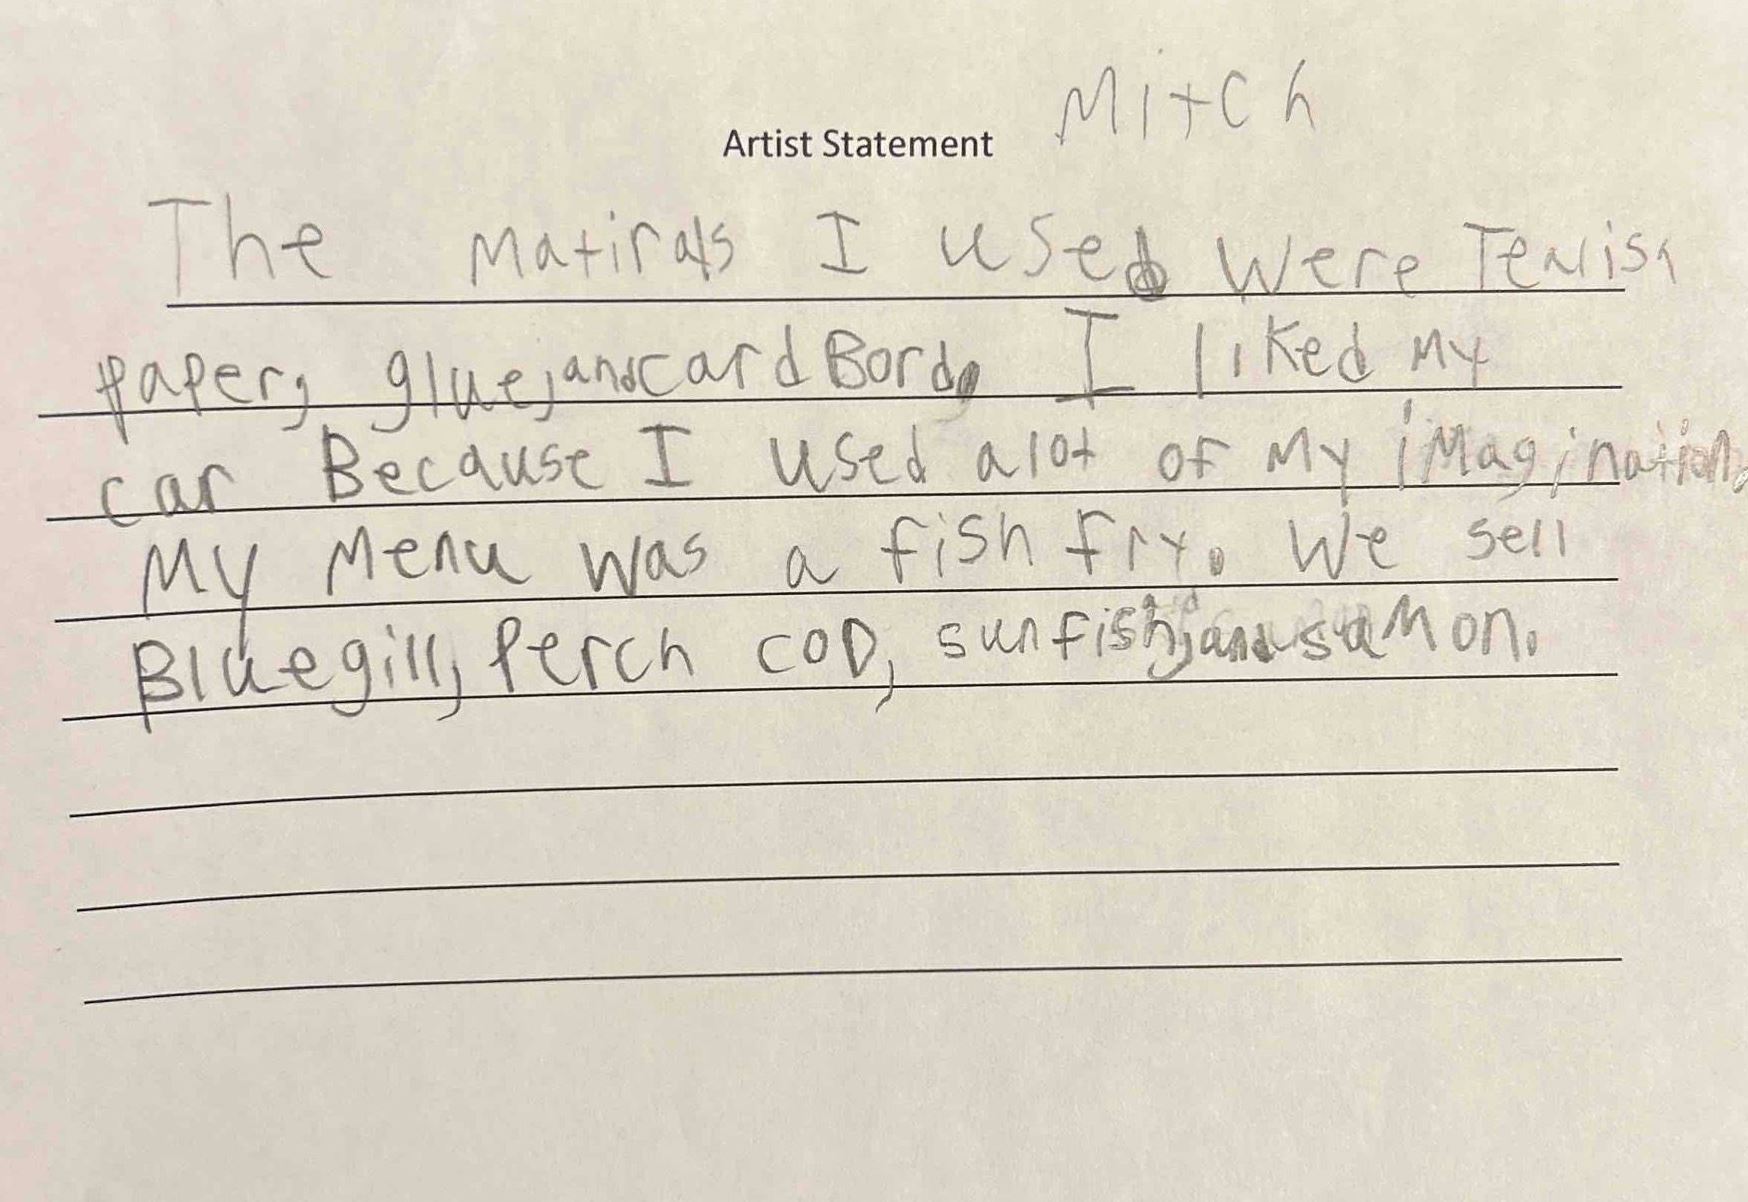 Mitch
Artist Statement
The Matirals I used Were Tenish
paper, glue, and cardBord, I liked My
car Because I used alot of My iMagination.
My Menu was a fish fry. We sell
Bluegill, Perch COD, sunfish, and saMon.